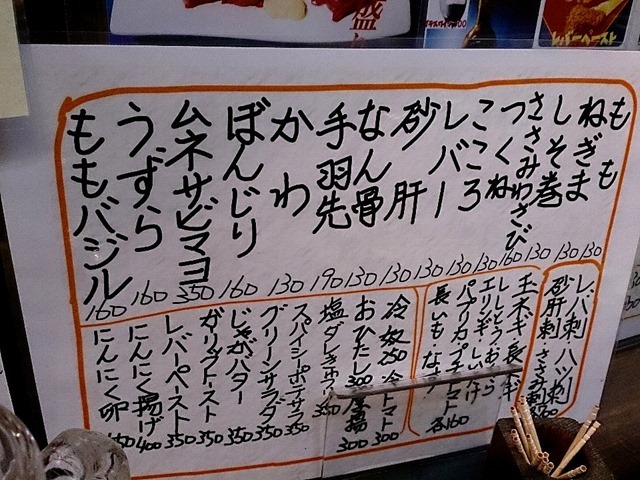 もも 130
ねぎま 130
しそ巻 130
ささみわさび 160
つくね 130
こころ 130
レバー 130
砂肝 130
なん骨 130
手羽先 190
かわ 130
ぼんじり 160
ムネサビマヨ 350
うずら 160
ももバジル 160
レバ刺 ハツ刺
砂肝刺 ささみ刺
玉ネギ 長ネギ
ししとう おくら
エリンギ しいたけ
パプリカ プチトマト
長いも なす 各160
冷奴 250 冷トマト 300
おひたし 300 厚揚 300
塩ダレキャベツ 350
スパイシーポテサラ 350
グリーンサラダ 350
じゃがバター 350
ガーリックトースト 350
レバーペースト 350
にんにく揚げ 400
にんにく卵
レバーペースト